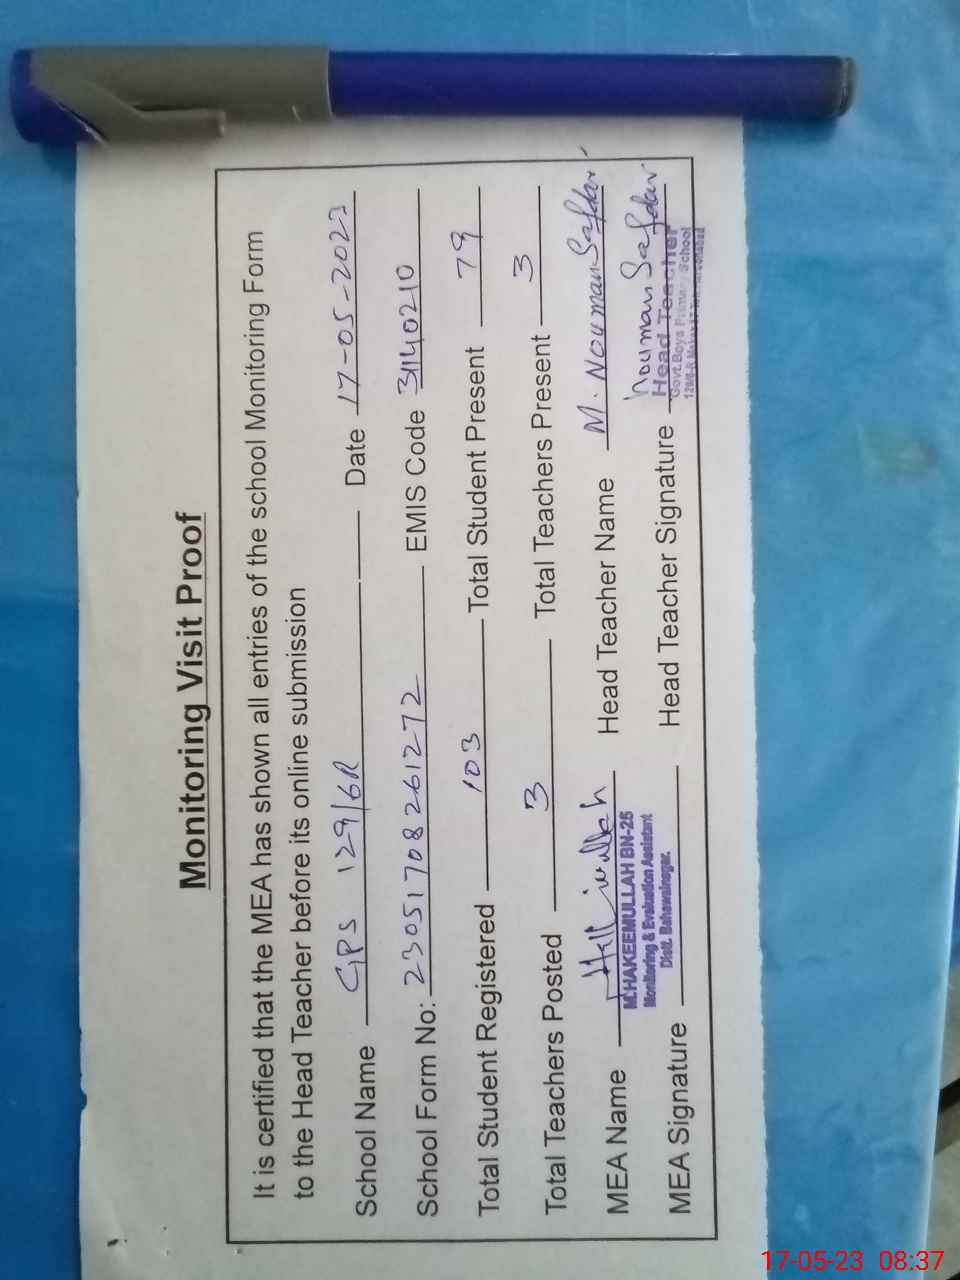 Monitoring Visit Proof
It is certified that the MEA has shown all entries of the school Monitoring Form
to the Head Teacher before its online submission
School Name GPS 129/6R Date 17-05-2023
School Form No: 23051708261272 EMIS Code 31140210
Total Student Registered 103 Total Student Present 79
Total Teachers Posted 3 Total Teachers Present 3
MEA Name Head Teacher Name M. Nouman Safdar
M.HAKEEMULLAH BN-25
Monitoring & Evaluation Assistant
Distt. Bahawalnagar.
MEA Signature Head Teacher Signature Nouman Safdar
Head Teacher
Govt. Boys Primary School
129/6-R
17-05-23 08:37